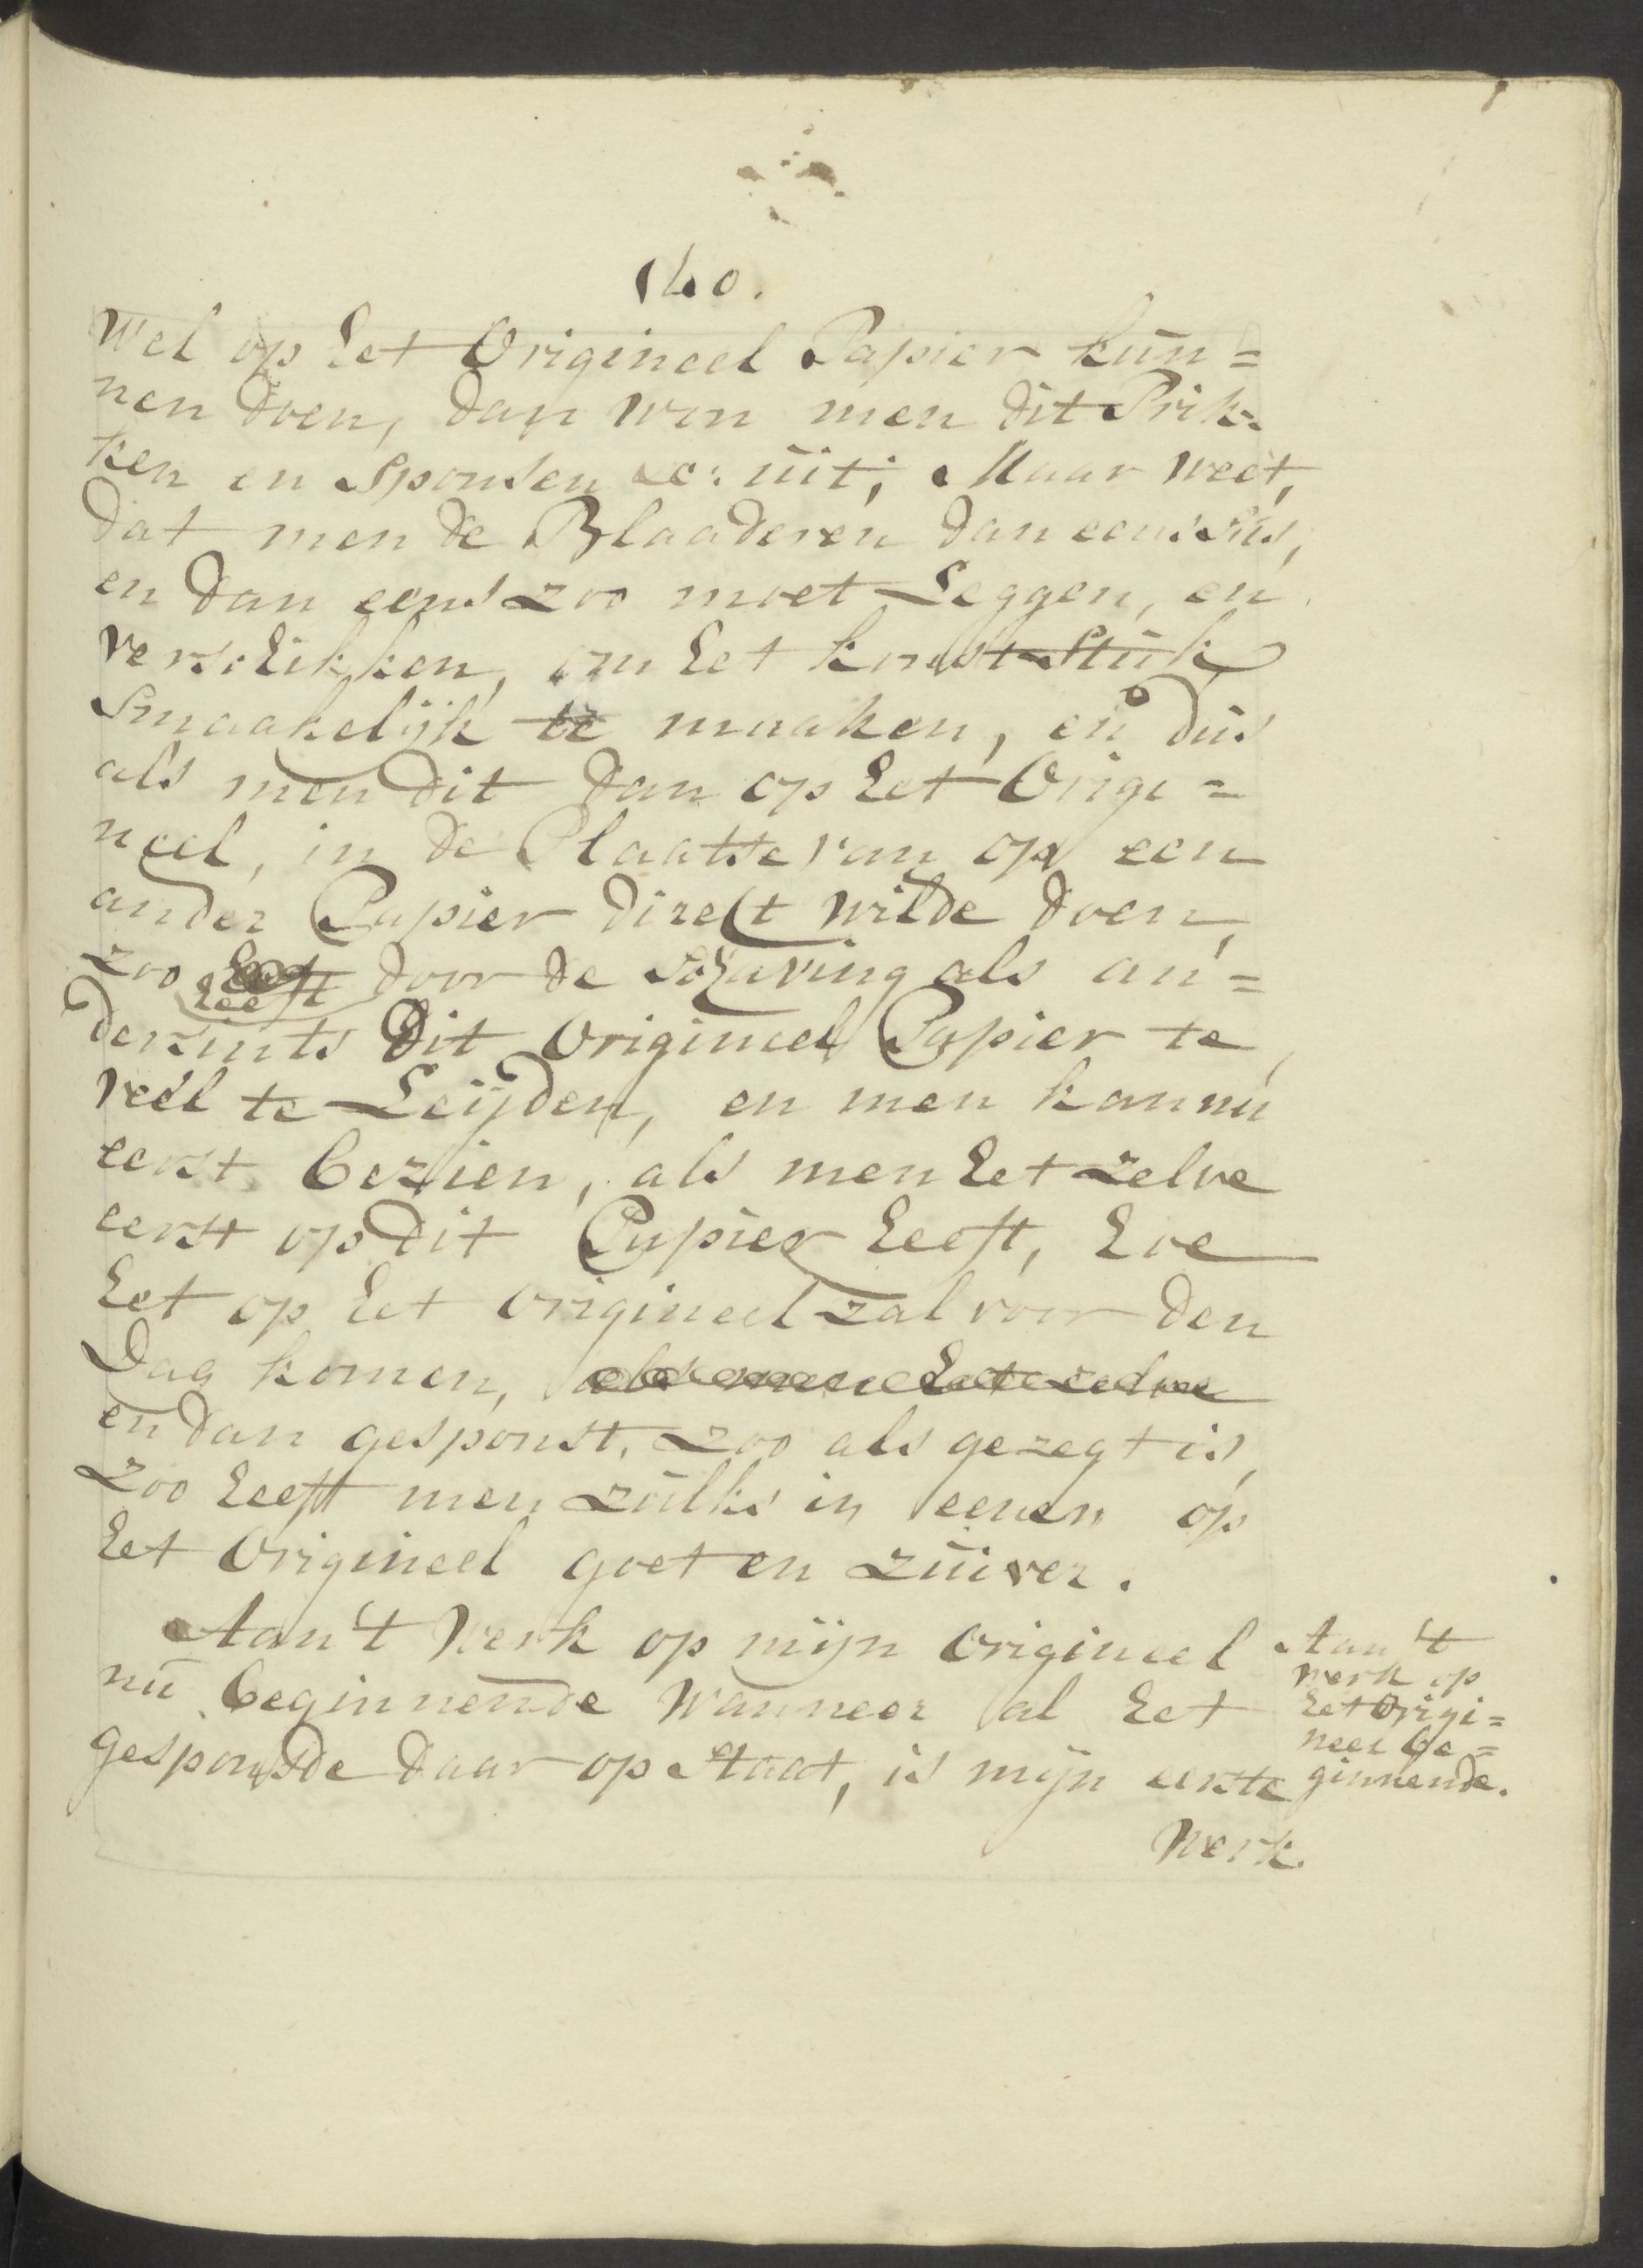 140.
Wel op het Origineel Papier kun=
nen doen, dan won men dit Prik=
ken en Sponsen &c: uit; Maar weet,
dat men de Blaaderen dan eens dus,
en dan eens zoo moet Leggen, en
verschikken, om het konst-Stuk
Smaakelijk te maaken, en dus
als men dit dan op het Origi=
neel, in de Plaatse van op een
ander Papier direct wilde doen,
zoo heeft door de Schaving als an=
derzints dit Origineel Papier te
veel te Leijden, en men kan nu
eerst bezien, als men het zelve
eerst op dit Papier heeft, hoe
het op het origineel zal voor den
Dag komen, als men het zelve
en dan gesponst, zoo als gezegt is,
zoo heeft men zulks in eenen op
het Origineel goet en zuiver.
Aan't Werk op mijn Origineel
nu beginnende Wanneer al het
gesponsde daar op Staat, is mijn eerste
Werk.
Aan't
werk op
het Origi=
neel be=
ginnende.